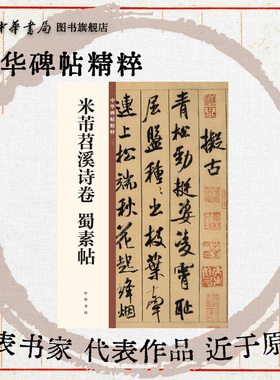 中華書局 图书旗舰店
华碑帖精粹
中华碑帖精粹
米芾苕溪诗卷 蜀素帖
中华书局
擬古
青松勁挺姿凌霄恥
屈盤種〻出枝葉牽
連上松端秋花起絳烟
表书家 代表作品 近于原